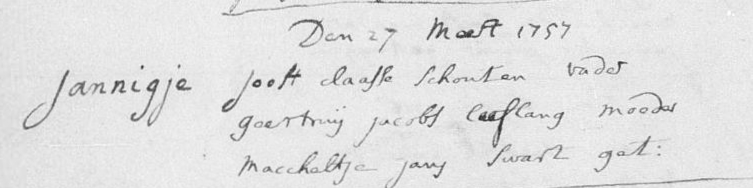 Den 27 Maert 1757
Jannigje Joost claasse Schouten vader
geertruij jacobs leeflang mooder
Maccheltje jans Swart get: